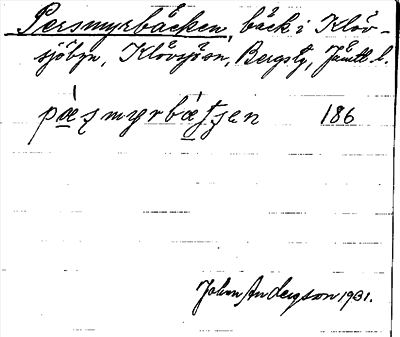 Persmyrbäcken, bäck i Klöv-
sjöbyn, Klövsjösn, Bergs tg, Jämtl. l.
pæșmyrbætʃen 186
Johan Anderson 1931.